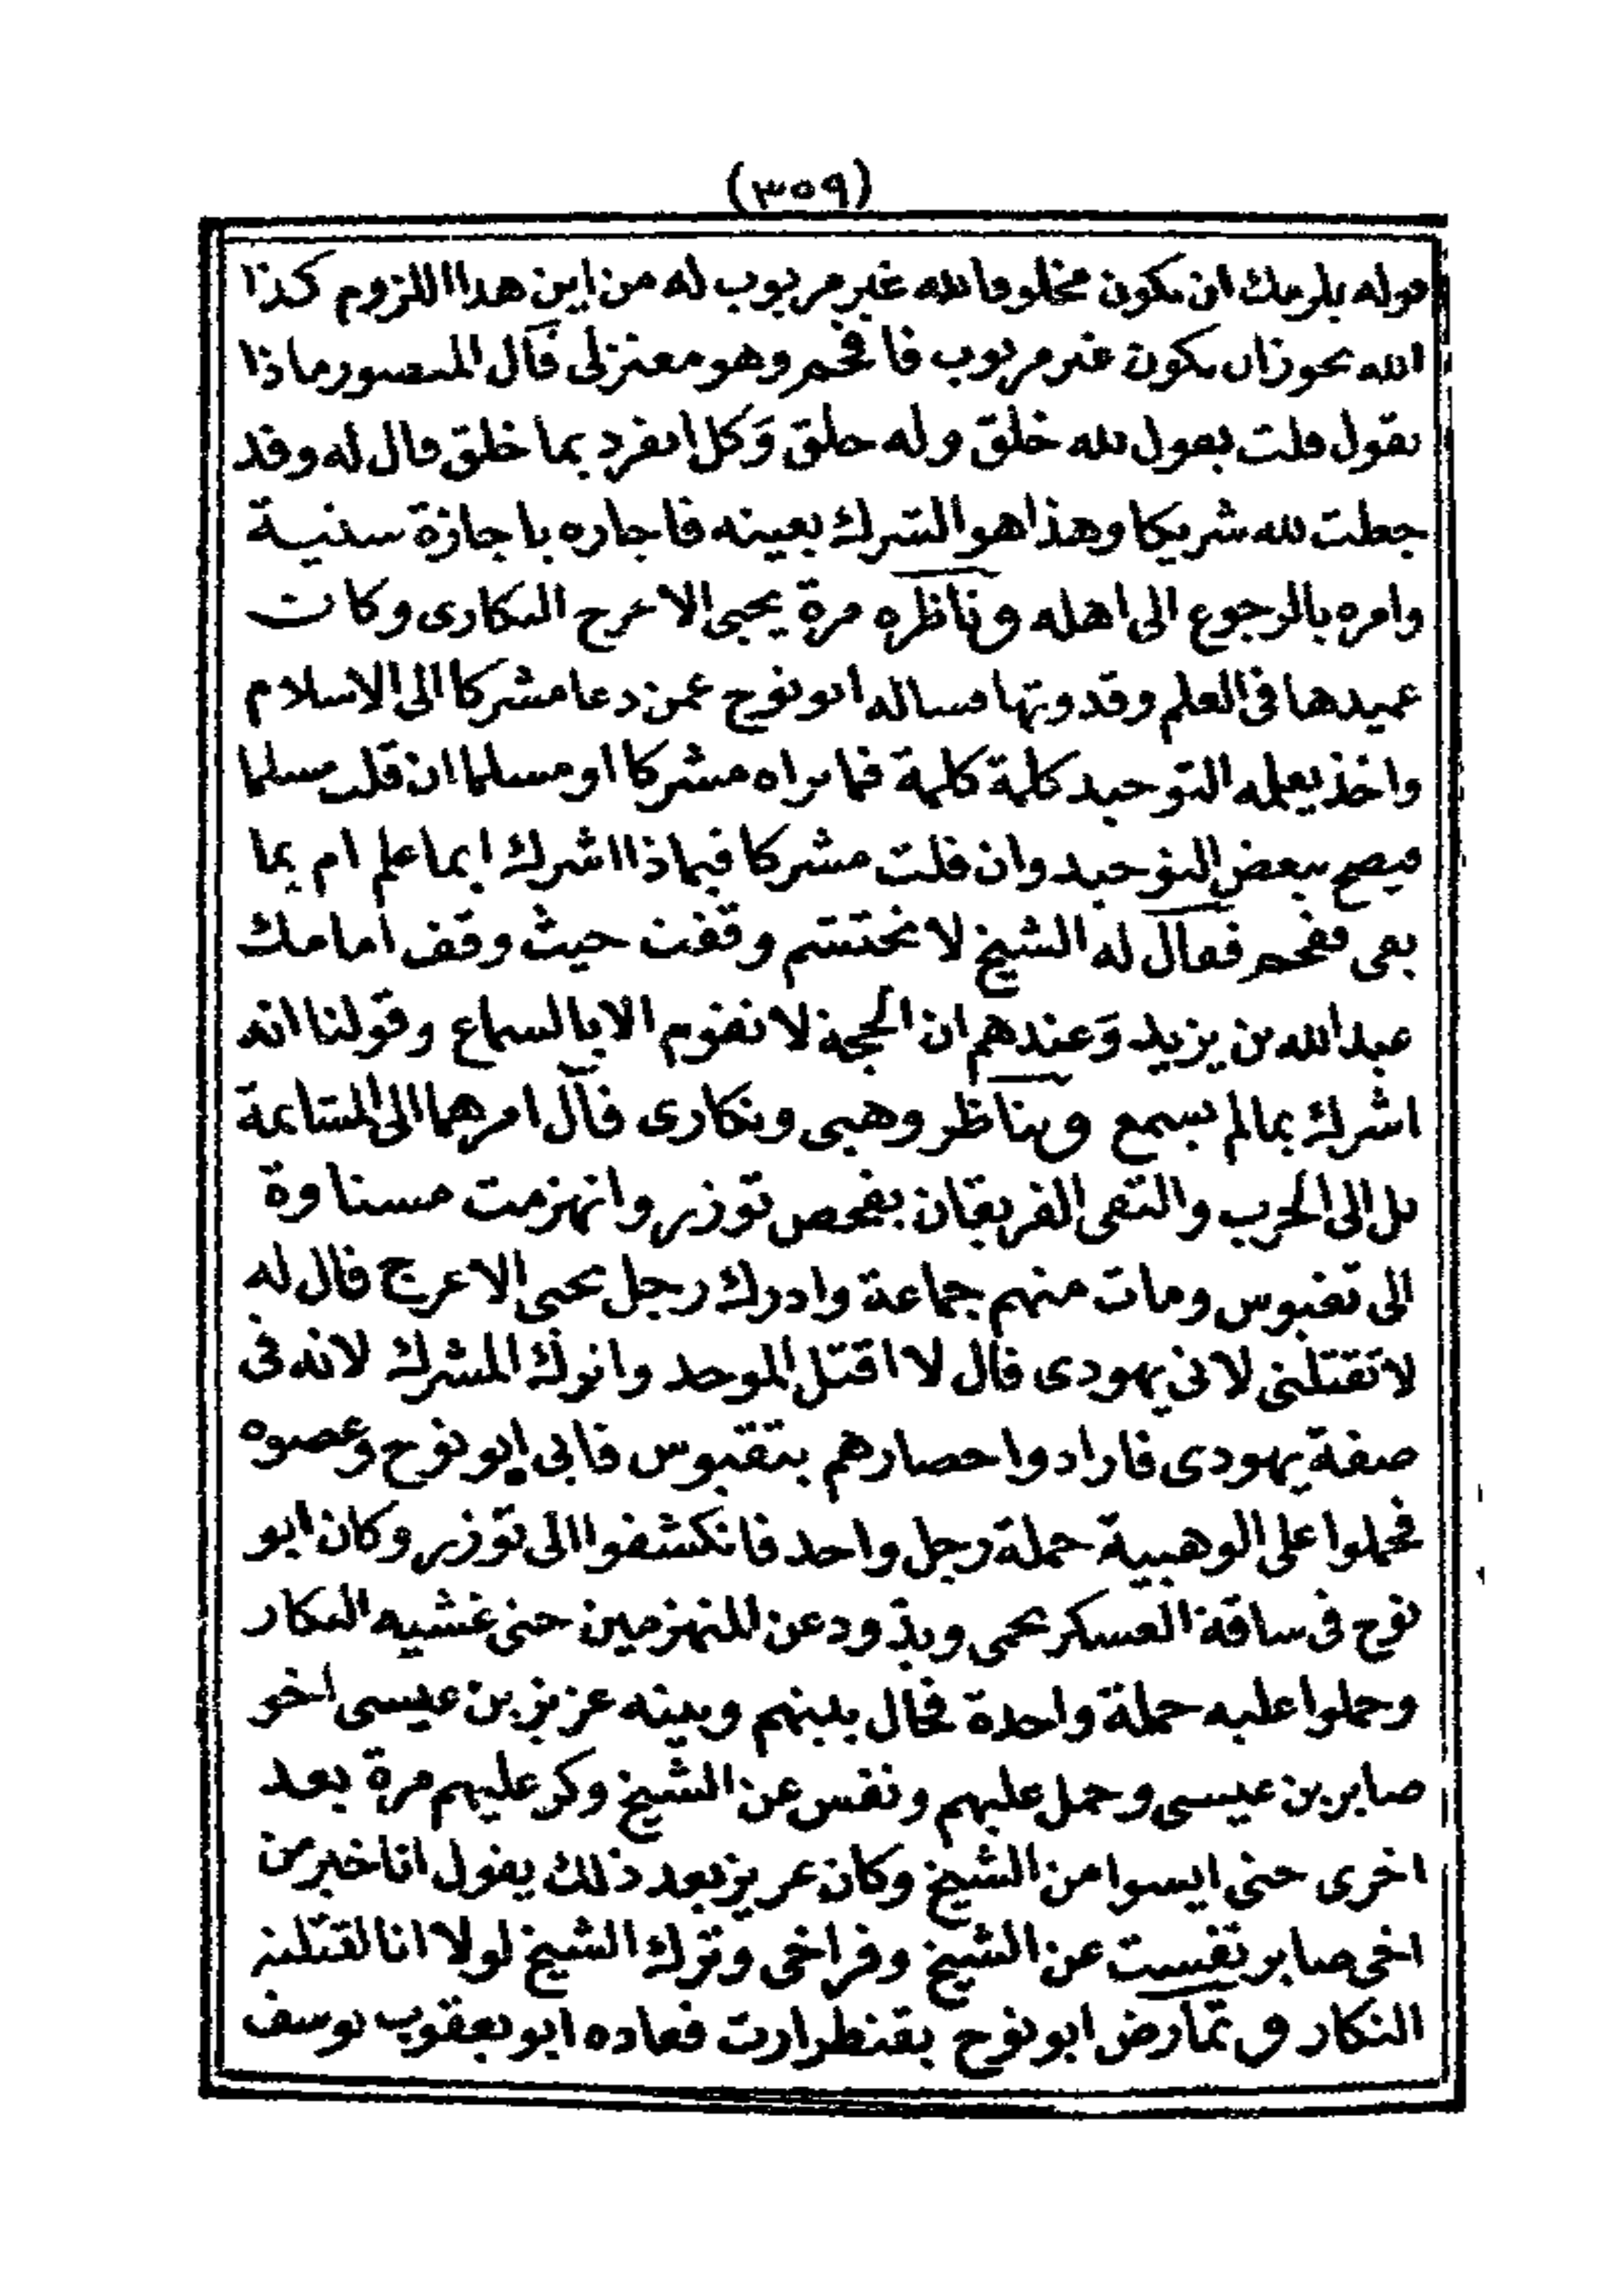 (٣٥٩)
قوله يلزمك ان يكون مخلوقا لله غير مربوب له من اين هذا اللزوم كذا
الله يجوز ان يكون غير مربوب فافحم وهو معتزلى قال المنصور ماذا
تقول قلت يقول لله خلق وله خلق وكل انفرد بما خلق قال له وقد
جعلت لله شريكا وهذا هو الشرك بعينه فاجازه باجازة سنية
وامره بالرجوع الى اهله وناظره مرة يحيى الاعرج النكارى وكان
عميدها فى العلم وقدوتها فساله ابو نوح عمن دعا مشركا الى الاسلام
واخذ يعلمه التوحيد كلمة كلمة فما تراه مشركا او مسلما ان قلت مسلما
فيصح ببعض التوحيد وان قلت مشركا فبماذا اشرك ابما علم ام بما
بقى ففحم فقال له الشيخ لا تحتشم وقفت حيث وقف امامك
عبد الله بن يزيد وعندهم ان الحجة لا تقوم الا بالسماع وقولنا انه
اشرك بما لم يسمع وتناظر وهبى ونكارى فآل امرهما الى المشاتمة
بل الى الحرب والتقى الفريقان بفحص توزر وانهزمت مسناوة
الى تقيوس ومات منهم جماعة وادرك رجل يحيى الاعرج قال له
لا تقتلنى لانى يهودى قال لا اقتل الموحد واترك المشرك لانه فى
صفة يهودى فارادوا حصارهم بتقيوس فابى ابو نوح وعصوه
فحملوا على الوهبية حملة رجل واحد فانكشفوا الى توزر وكان ابو
نوح فى ساقة العسكر يحمى ويذود عن المنهزمين حتى غشيه النكار
وحملوا عليه حملة واحدة فحال بينهم وبينه عزيز بن عيسى اخو
صابر بن عيسى وحمل عليهم ونفس عن الشيخ وكر عليهم مرة بعد
اخرى حتى ايسوا من الشيخ وكان عزيز بعد ذلك يقول انا خير من
اخى صابر نفست عن الشيخ وفر اخى وترك الشيخ لولا انا لقتلته
النكار وتمارض ابو نوح بقنطرارت فعاده ابو يعقوب يوسف